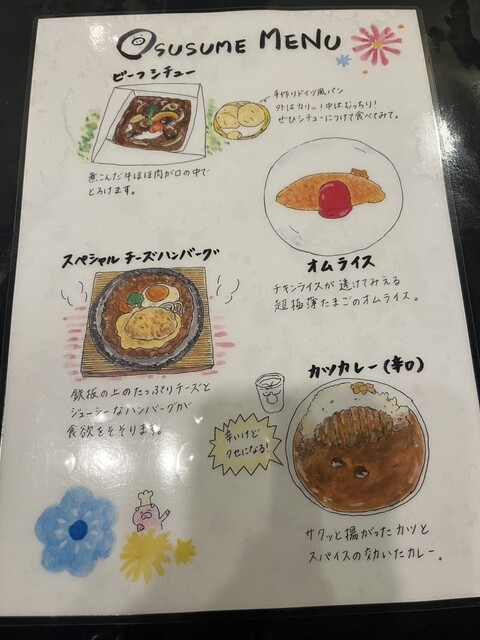 OSUSUME MENU
ビーフシチュー
手作りドイツ風パン
外はカリッ!中はむっちり!
ぜひシチューにつけて食べてみて。
煮こんだ牛ほほ肉が口の中で
とろけます。
オムライス
チキンライスが透けてみえる
超極薄たまごのオムライス。
スペシャル チーズハンバーグ
鉄板の上のたっぷりチーズと
ジューシーなハンバーグが
食欲をそそります。
カツカレー(辛口)
辛いけど
クセになる!
サクッと揚がったカツと
スパイスの効いたカレー。